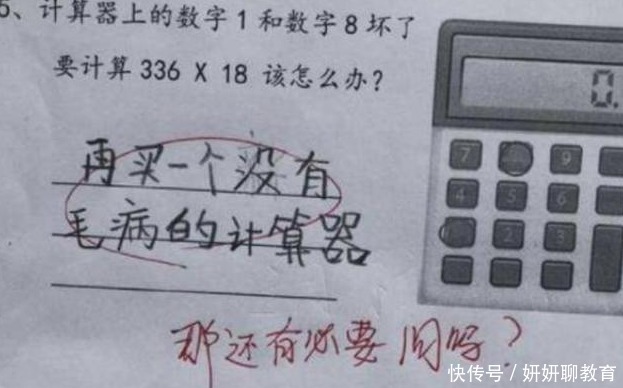 5、计算器上的数字1和数字8坏了
要计算 336 X 18 该怎么办?
再买一个没有
毛病的计算器
那还有必要问吗?
0.
7
9
4
5
6
2
3
快传号/妍妍聊教育